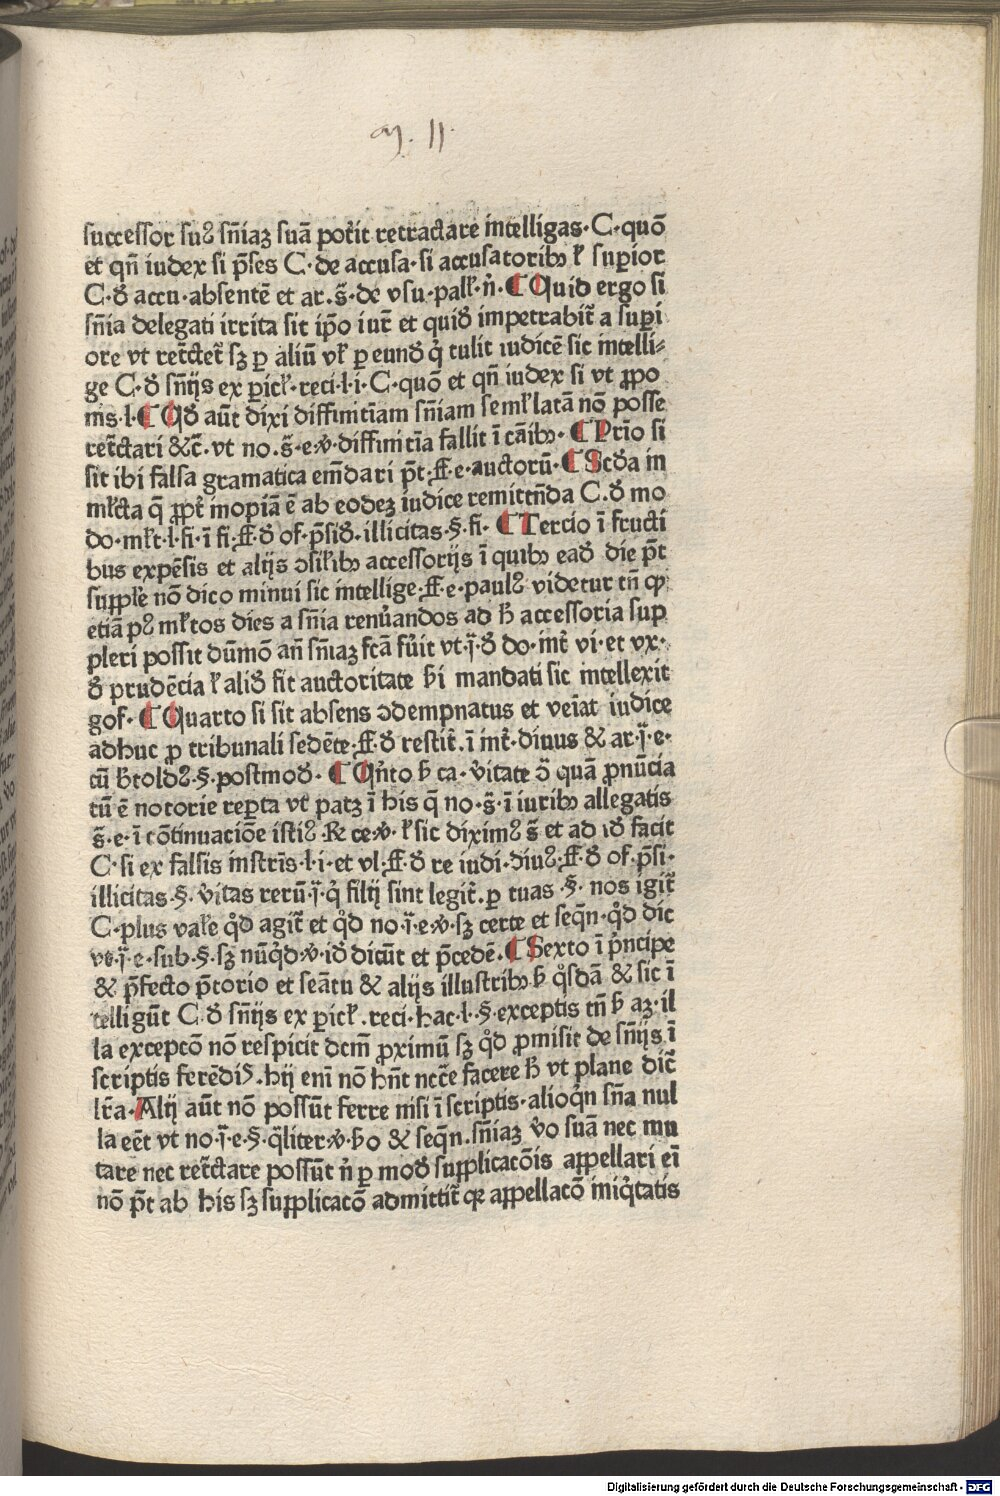 successor suꝰ sn̄iaꝫ suā pot̄it retractare intelligas·C·quō
et qn̄ iudex si p̄ses C·de accusa·si accusatoribꝫ ł supior
C·ꝺ̄ accu·absentē et ar·s̄·de vsu·pall·n̄·¶ Quid ergo si
sn̄ia delegati irrita sit ip̄o iur̄ et quiꝺ̄ impetrabit̄ a supi
ore vt ret̄ctet̄ sꝫ ꝑ aliū vł ꝑ eunꝺ̄ q̇ tulit iudicē sic intelli⸗
ge C·ꝺ̄ sn̄ijs ex ꝑicł·reci·l·i·C·quō et qn̄ iudex si vt ꝓpo
nis·l·¶ Qꝺ̄ aūt dixi diffinitīam sn̄iam semł latā nō posse
ret̄ctari &c̄·vt no·s̄·e·v̇·diffinitīa fallit ī cāibꝫ·¶ Pri̅o si
sit ibi falsa gramatica em̄dari p̄t·ff·e·auctorū·¶ Scꝺ̄a in
mł̄cta q̄ ꝓpt̄ inopiā ē ab eodeꝫ iudice remittn̄da C·ꝺ̄ mo
do·mł̄t·l·fi·ī fi·ff·ꝺ̄ of·p̄siꝺ̄·illicitas·§·fi·¶ Tercio ī fructi
bus expēsis et alijs ↄsił̄ibꝫ accessorijs ī quibꝫ eaꝺ̄ die p̄t
supplēre nō dico minui sic intellige·ff·e·paulꝰ videtur tn̄ ꝙ
etiā pꝰ mł̄tos dies a sn̄ia renūandos ad h̄ accessoria sup
pleri possit dūmō an̄ sn̄iaꝫ fcā fūit vt·j̄·ꝺ̄ do·int̄ vi·et vx·
ꝺ̄ prudēcia ł aliꝺ̄ fit auctoritate h̄i mandati sic intellexit
gof·¶ Quarto si sit absens ↄdempnatus et veīat iudice
adhuc ꝓ tribunali sedēte·ff·ꝺ̄ restit̄·ī int̄·diuus & ar·j̄·e·
cū b̄toldꝰ·§·postmoꝺ̄·¶ Qn̄to h̄ ca·v̄itate ↄ̄ quā ꝓnūcia
tū ē notorie repta vt patꝫ ī his q̄ no·s̄·ī iuribꝫ allegatis
s̄·e·ī cōtinuaciōe istiꝰ·℞ ce·v̇·ł sic diximꝰ s̄ et ad iꝺ̄ facit
C·si ex falsis instrīs·l·i·et vl·ff·ꝺ̄ re iudi·diuꝰ·ff·ꝺ̄ of·p̄si·
illicitas·§·v̄itas rerū·j̄·q̇ filij sint legit̄·ꝑ tuas·§·nos igit̄
C·plus vałe qꝺ̄ agit̄ et qꝺ̄ no·j̄·e·v̇·sꝫ certe et seqn̄·qꝺ̄ dic
vs·j̄·e·sub·§·sꝫ nūqꝺ̄·v̇·iꝺ̄ dicūt et p̄cedē·¶ Sexto ī pn̄cipe
& p̄fecto p̄torio et seātu & alijs illustribꝫ h̄ qꝺ̄sdā & sic ī
telligūt C·ꝺ̄ sn̄ijs ex ꝑicł·reci·hac·l·§·exceptis tn̄ h̄ aꝫ·il
la excepcō nō respicit dcm̄ ꝓximū sꝫ qꝺ̄ ꝓmisit de sn̄ijs ī
scriptis ferēdis·hij eni̅ nō hn̄t nec̄e facere h̄ vt plane dic̄
lr̄a·Alij aūt nō possūt ferre nisi ī scriptis·alioqn̄ sn̄a nul
la eēt vt no·j̄·e·§·qliter·v̇·h̄o & seqn̄·sn̄iaꝫ v̄o suā nec mu
tare nec ret̄ctare possūt n̄ ꝑ moꝺ̄ supplicacōis appellari ei̅
nō p̄t ab his sꝫ supplicacō admittit̄ qꝛ appellacō iniq̇tatis
Digitalisierung gefördert durch die Deutsche Forschungsgemeinschaft · DFG